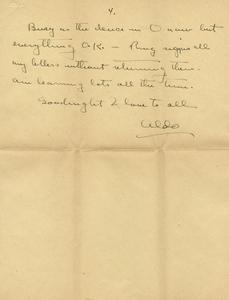 4.
Busy as the deuce in O now but
everything O.K. — Ring signs all
my letters without returning them.
am learning lots all the time.
Goodnight & love to all
Aldo